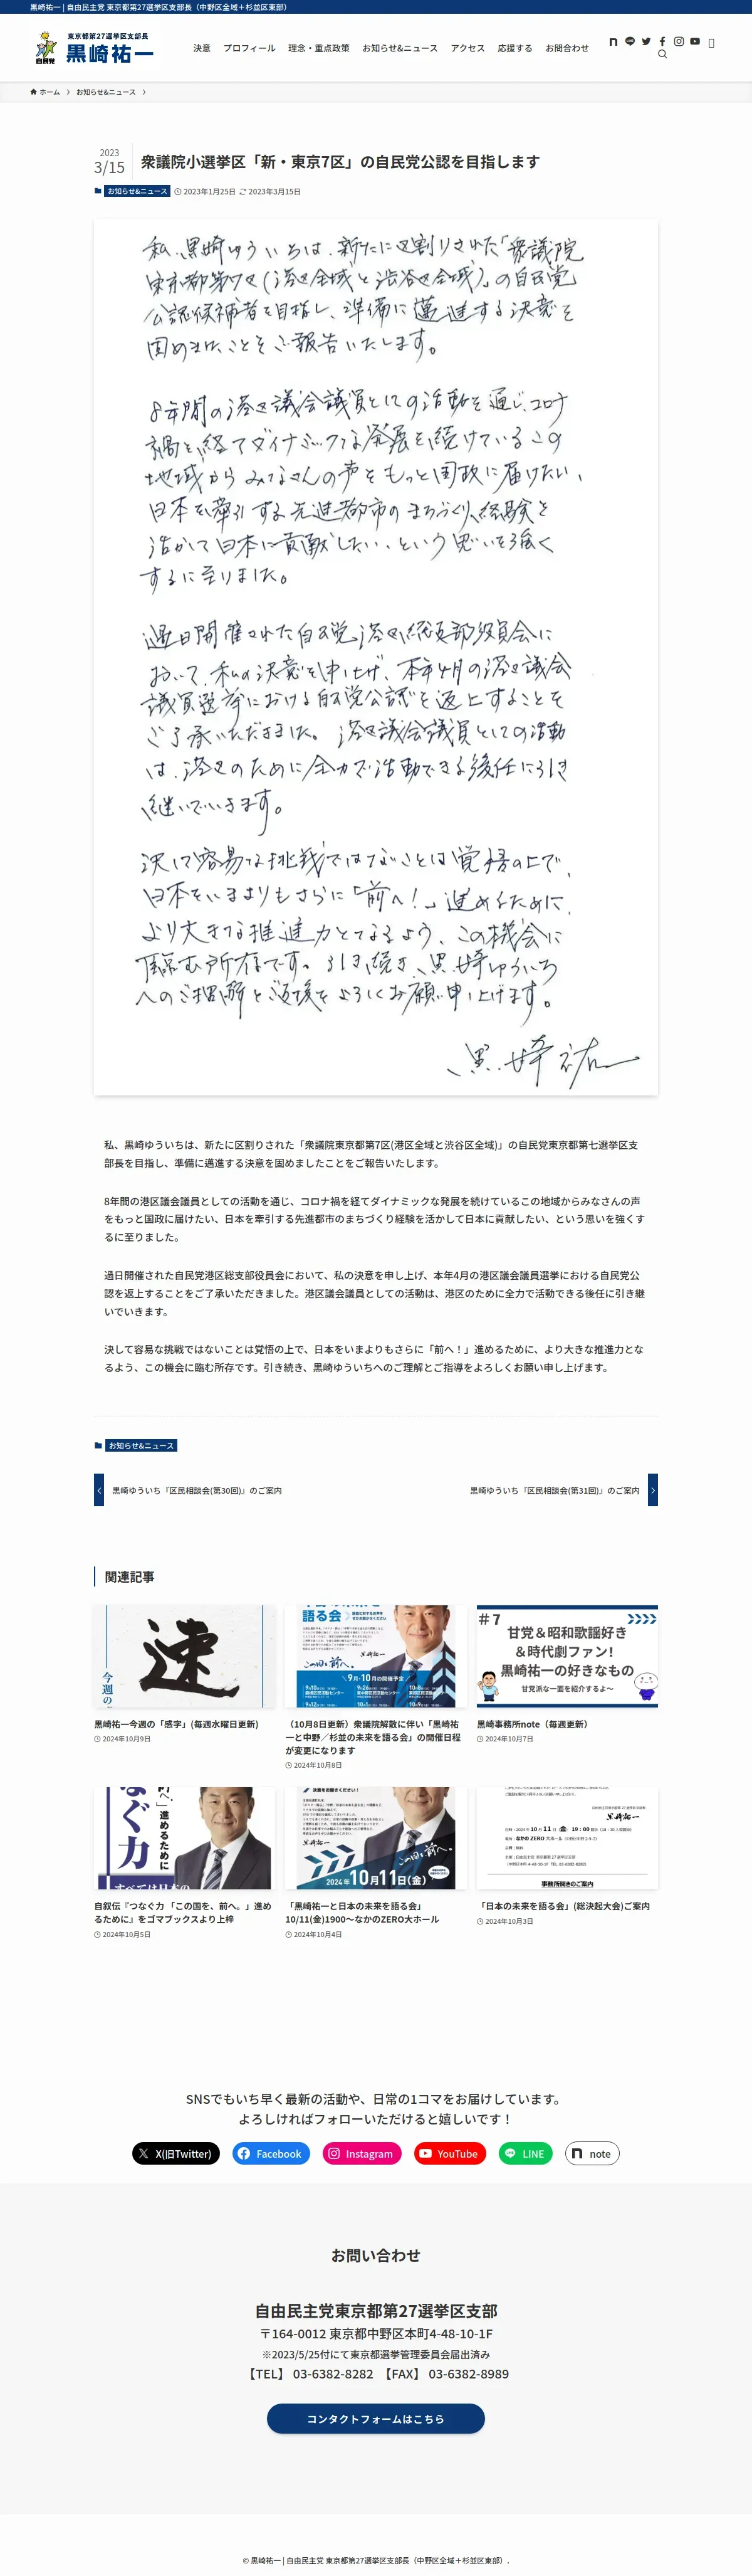 黒崎祐一 | 自由民主党 東京都第27選挙区支部長（中野区全域＋杉並区東部）
自民党
東京都第27選挙区支部長
黒崎祐一
決意 プロフィール 理念・重点政策 お知らせ&ニュース アクセス 応援する お問合わせ
ホーム 〉 お知らせ&ニュース 〉
2023
3/15
衆議院小選挙区「新・東京7区」の自民党公認を目指します
お知らせ&ニュース 2023年1月25日 2023年3月15日
私、黒崎ゆういちは、新たに区割りされた「衆議院
東京都第7区(港区全域と渋谷区全域)」の自民党
公認候補者を目指し、準備に邁進する決意を
固めましたことをご報告いたします。
8年間の港区議会議員としての活動を通じ、コロナ
禍を経てダイナミックな発展を続けているこの
地域からみなさんの声をもっと国政に届けたい、
日本を牽引する先進都市のまちづくり経験を
活かして日本に貢献したい、という思いを強く
するに至りました。
過日開催された自民党港区総支部役員会に
おいて、私の決意を申し上げ、本年4月の港区議会
議員選挙における自民党公認を返上することを
ご了承いただきました。港区議会議員としての活動
は、港区のために全力で活動できる後任に引き
継いでいきます。
決して容易な挑戦ではないことは覚悟の上で、
日本をいまよりもさらに「前へ！」進めるために、
より大きな推進力となるよう、この機会に
臨む所存です。引き続き、黒崎ゆういち
へのご理解とご指導をよろしくお願い申し上げます。
黒崎祐一
私、黒崎ゆういちは、新たに区割りされた「衆議院東京都第7区(港区全域と渋谷区全域)」の自民党東京都第七選挙区支
部長を目指し、準備に邁進する決意を固めましたことをご報告いたします。
8年間の港区議会議員としての活動を通じ、コロナ禍を経てダイナミックな発展を続けているこの地域からみなさんの声
をもっと国政に届けたい、日本を牽引する先進都市のまちづくり経験を活かして日本に貢献したい、という思いを強くす
るに至りました。
過日開催された自民党港区総支部役員会において、私の決意を申し上げ、本年4月の港区議会議員選挙における自民党公
認を返上することをご了承いただきました。港区議会議員としての活動は、港区のために全力で活動できる後任に引き継
いでいきます。
決して容易な挑戦ではないことは覚悟の上で、日本をいまよりもさらに「前へ！」進めるために、より大きな推進力とな
るよう、この機会に臨む所存です。引き続き、黒崎ゆういちへのご理解とご指導をよろしくお願い申し上げます。
お知らせ&ニュース
黒崎ゆういち『区民相談会(第30回)』のご案内
黒崎ゆういち『区民相談会(第31回)』のご案内
関連記事
速
今週の
語る会
この国を、前へ。
9月・10月の開催予定
＃7
甘党＆昭和歌謡好き
＆時代劇ファン！
黒崎祐一の好きなもの
甘党派な一面を紹介するよ〜
黒崎祐一今週の「感字」(毎週水曜日更新)
2024年10月9日
（10月8日更新）衆議院解散に伴い「黒崎祐
一と中野／杉並の未来を語る会」の開催日程
が変更になります
2024年10月8日
黒崎事務所note（毎週更新）
2024年10月7日
なぐ力
へ。」進めるために
すべては日本の
決意をお聞きください！
黒崎祐一
この国を、前へ。
2024年10月11日(金)
黒崎祐一
日時：2024年10月11日（金）19：00開会
場所：なかのZERO 大ホール
会費：無料
事務所開きのご案内
自叙伝『つなぐ力 「この国を、前へ。」進め
るために』をゴマブックスより上梓
2024年10月5日
「黒崎祐一と日本の未来を語る会」
10/11(金)1900〜なかのZERO大ホール
2024年10月4日
「日本の未来を語る会」(総決起大会)ご案内
2024年10月3日
SNSでもいち早く最新の活動や、日常の1コマをお届けしています。
よろしければフォローいただけると嬉しいです！
X(旧Twitter) Facebook Instagram YouTube LINE note
お問い合わせ
自由民主党東京都第27選挙区支部
〒164-0012 東京都中野区本町4-48-10-1F
※2023/5/25付にて東京都選挙管理委員会届出済み
【TEL】 03-6382-8282 【FAX】 03-6382-8989
コンタクトフォームはこちら
© 黒崎祐一 | 自由民主党 東京都第27選挙区支部長（中野区全域＋杉並区東部）.